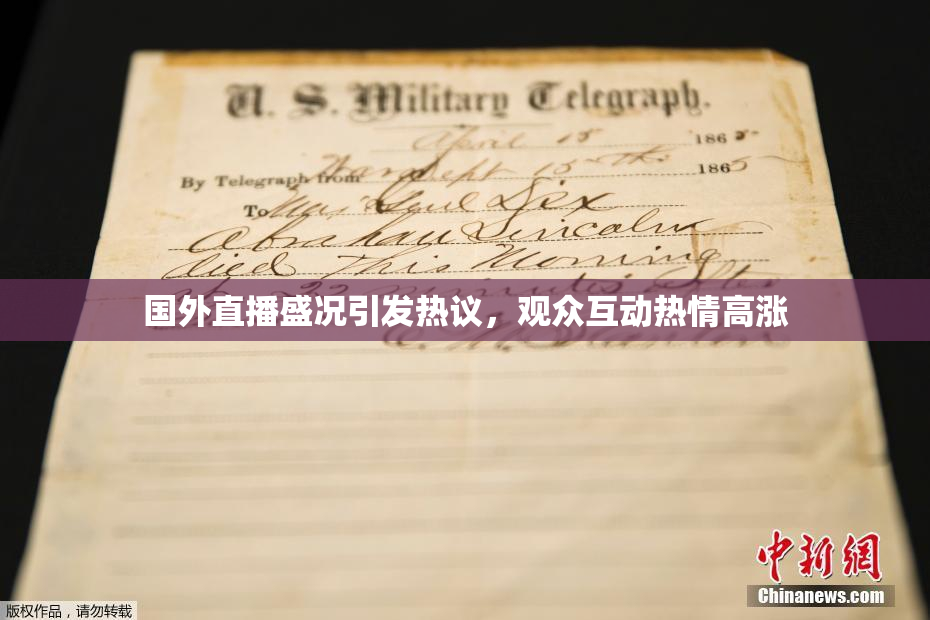 U. S. Military Telegraph.
April 15 1865
By Telegraph from War Dept 15th 1865
To Maj Genl Dix
Abraham Lincoln
died This Morning
at 22 minutes after
国外直播盛况引发热议，观众互动热情高涨
中新网
Chinanews.com
版权作品，请勿转载